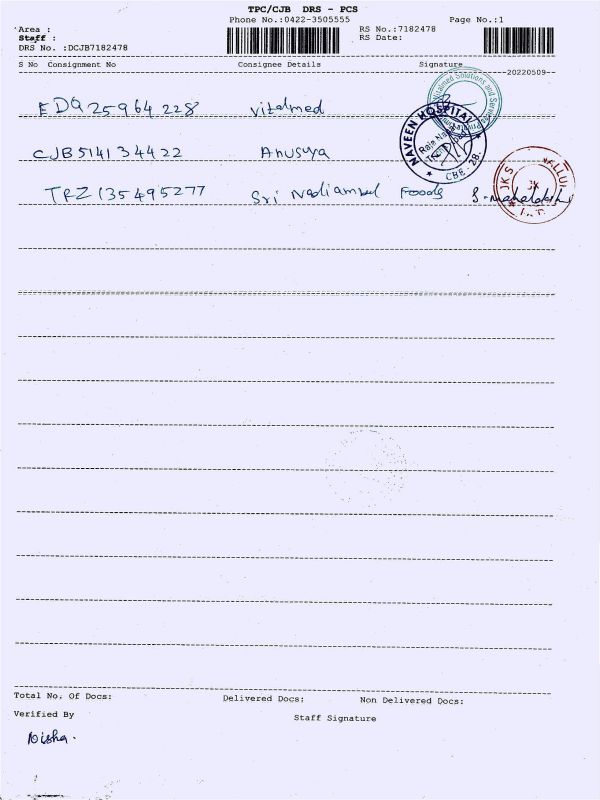 TPC/CJB DRS - PCS
Phone No.:0422-3505555 Page No.:1
Area : RS No.:7182478
Staff : RS Date:
DRS No. :DCJB7182478
S No Consignment No Consignee Details Signature
20220509
EDQ 25964228 Vitalmed
Vitalmed Solutions and Services
NAVEEN HOSPITAL
CBE - 28.
CJB514134422 Anusuya
TRZ135495277 Sri Nadiambal Foods S. Mahalakshmi
JKS
JK
Total No. Of Docs: Delivered Docs: Non Delivered Docs:
Verified By Staff Signature
Nisha.